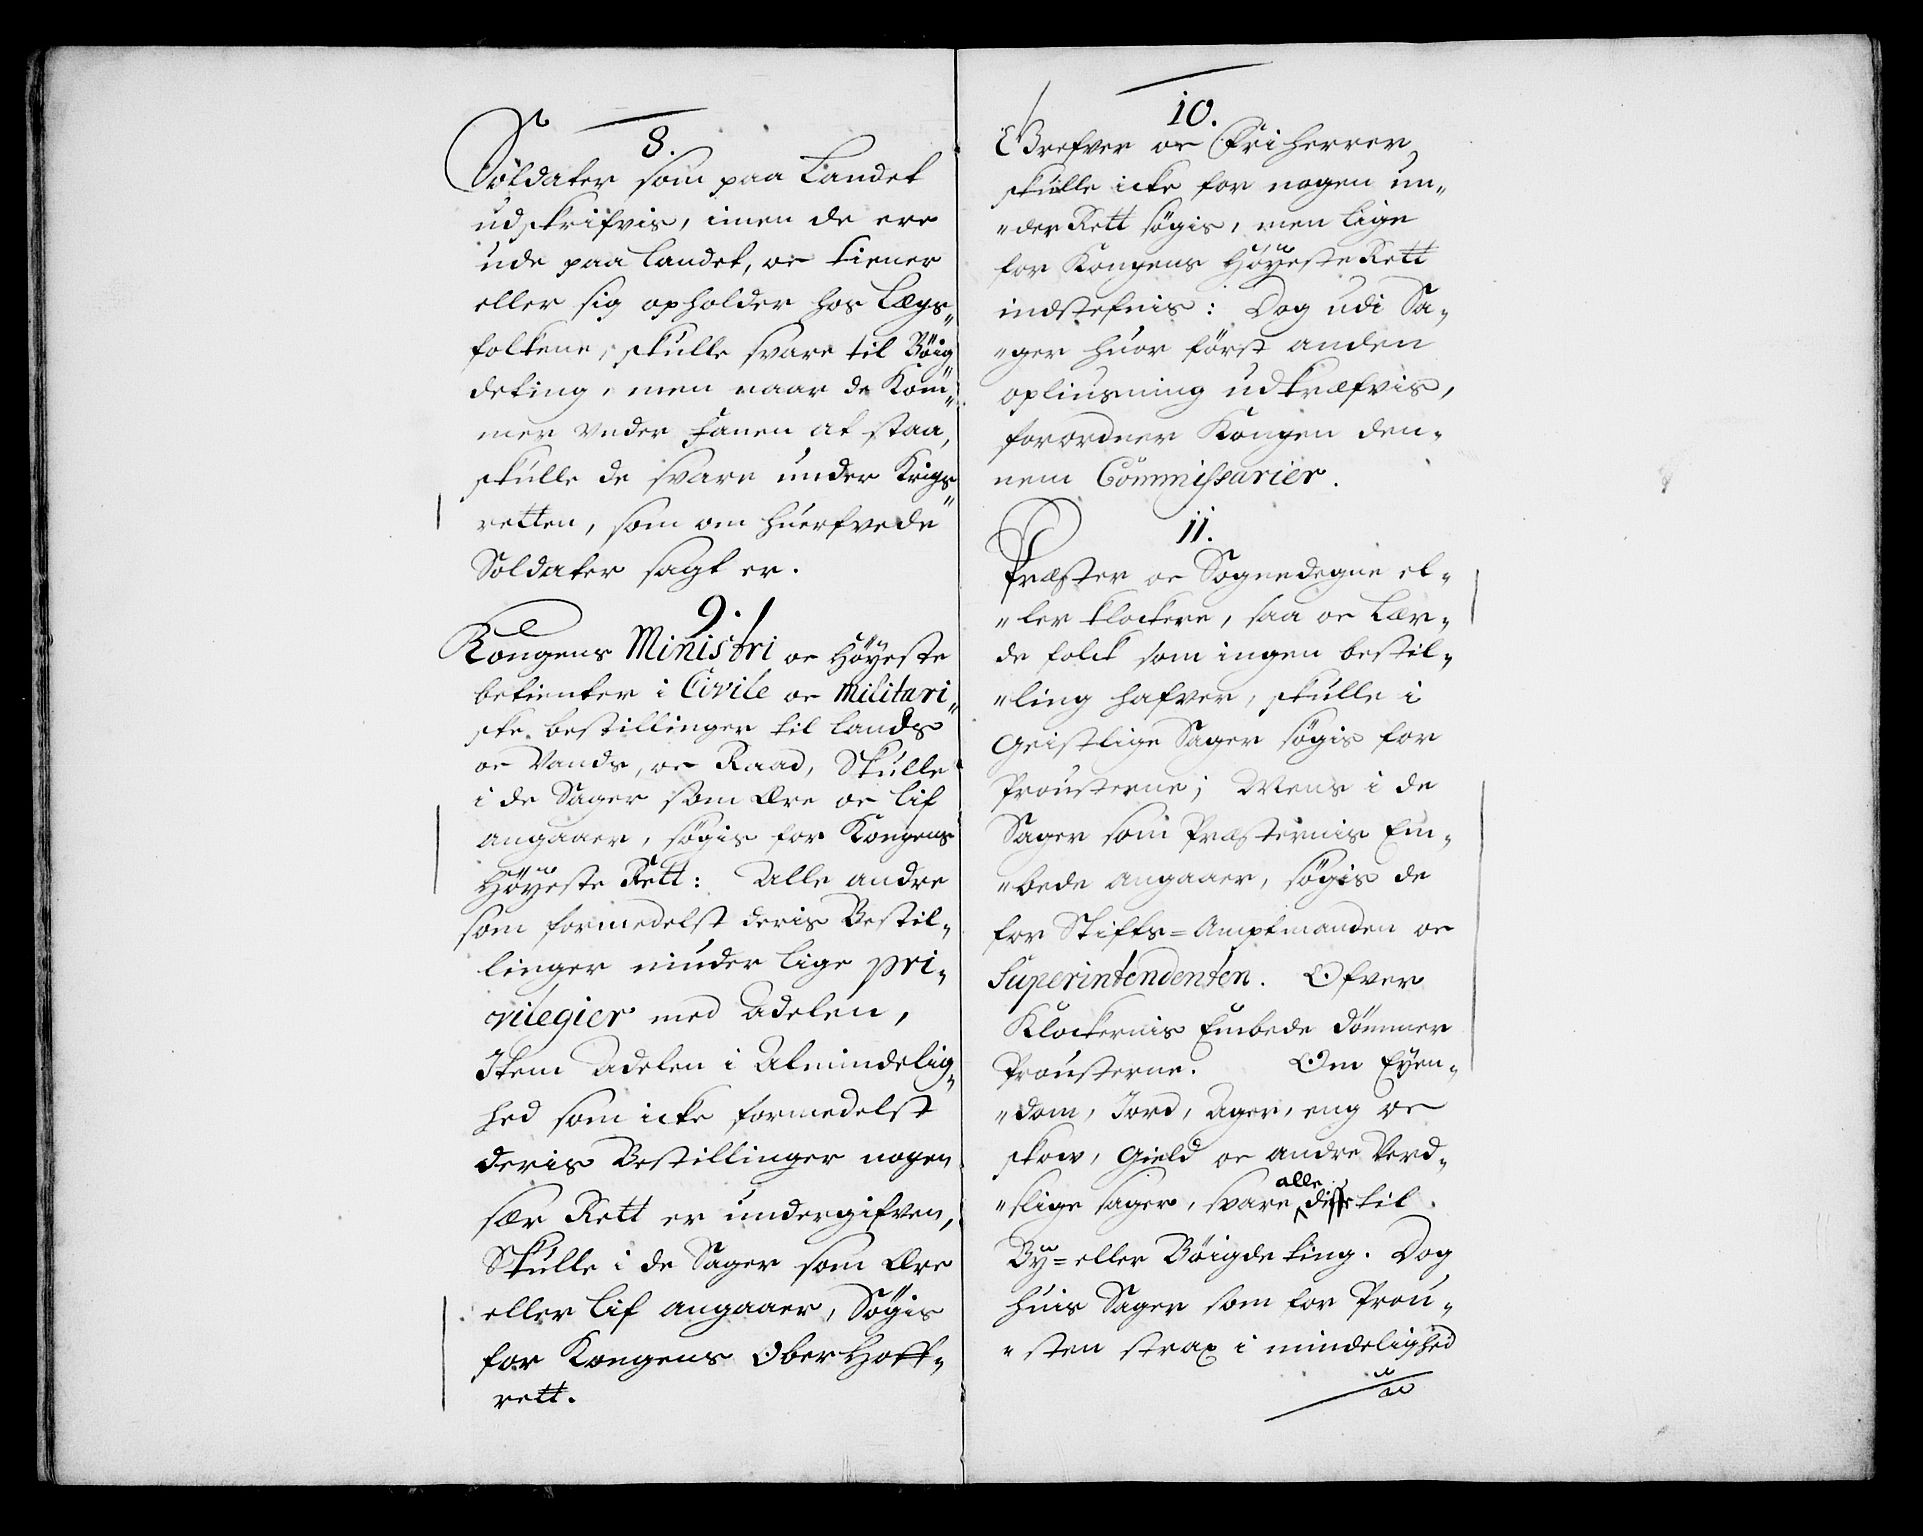 8.
Soldater som paa Landet
udskrifvis, imen de ere
ude paa landet, oc tiener
eller sig opholder hos Lægs„
folkene, skulle svare til Böig
deting, men naar de Kom„
mer under fanen at staa,
skulle de svare under Krigs„
retten, som om huerfvede
Soldater sagt er.
9.
Kongens Ministri oc Höyeste
betienter i Civile oc Militari„
ske bestillinger til lands
oc Vands, oc Raad, Skulle
i de Sager som Ære oc lif
angaaer, søgis for Kongens
Höyeste Rett: Alle andre
som formedelst deris Bestil„
linger niuder lige pri„
vilegier med Adelen,
Item Adelen i Almindelig„
hed som icke formedelst
deris Bestillinger nogen
sær Rett er undergifven,
Skulle i de Sager som Ære
eller lif angaaer, Søgis
for Kongens OberHoff„
rett.
10.
Grefver oc Friherrer
skulle icke for nogen un„
„der Rett søgis, men lige
for Kongens Höyeste Rett
indstefnis: Dog udi Sa„
„ger huor först anden
opliusning udkræfvis,
forordner Kongen den„
nem Commissarier.
11.
Præster oc Sognedegne el„
„ler klockere, saa oc Lær„
de folck som ingen bestil„
„ling hafver, skulle i
Geistlige Sager søgis for
Prousterne; Mens i de
Sager som Præsternis Em„
„bede angaaer, søgis de
for Stiffts=Amptmanden oc
Superintendenten. Ofver
Klockernis Embede dömmer
Prousterne. Om Eyen„
„dom, Jord, Ager, eng oc
skow, Gield oc andre Verd„
„slige sager, svare alle disse til
By= eller Böigde ting. Dog
huis Sager som for Prou„
„sten strax i mindelighed